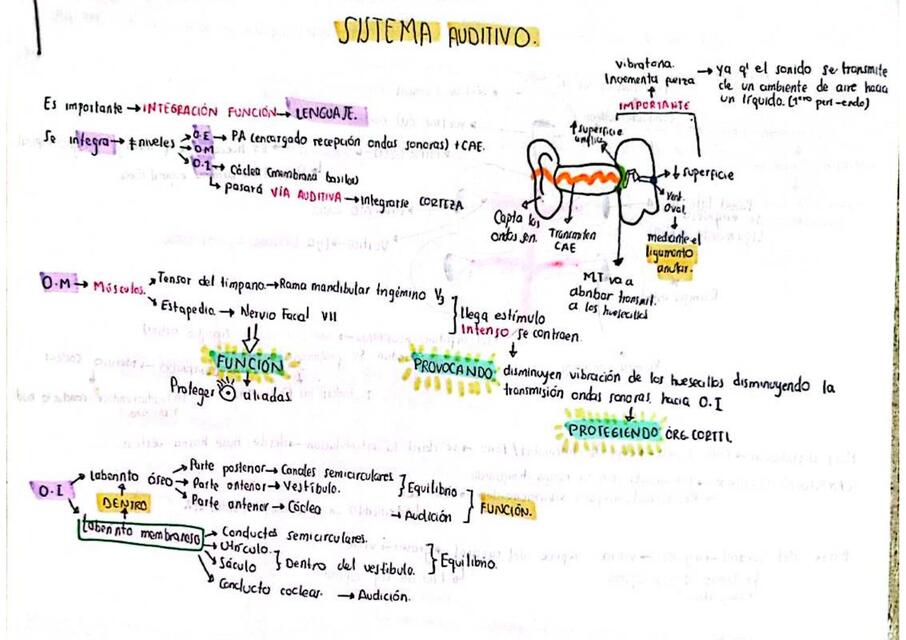 SISTEMA AUDITIVO.
vibratoria.
Incrementa fuerza → ya q' el sonido se transmite
de un ambiente de aire hacia
un líquido. (1ero peri-endo)
IMPORTANTE
Es importante → INTEGRACIÓN FUNCIÓN → LENGUAJE.
Se integra → ≠ niveles → O.E → PA (encargado recepción ondas sonoras) + CAE.
O.M
O.I → Cóclea (membrana basilar)
pasará VÍA AUDITIVA → Integrarse CORTEZA
↑ superficie
amplia
↓ superficie
Vent.
Oval.
mediante el
ligamento
anular.
Capta las
ondas son.
Transmiten
CAE
M.T va a
transmit.
a los huesecillos
O.M → Músculos. Tensor del tímpano → Rama mandibular trigémino V3
Estapedio → Nervio Facial VII
llega estímulo
Intenso se contraen.
FUNCIÓN
Proteger aliadas
PROVOCANDO disminuyen vibración de los huesecillos disminuyendo la
transmisión ondas sonoras. hacia O.I
PROTEGIENDO ORG. CORTTI.
O.I → Laberinto óseo → Parte posterior → Canales semicirculares
Parte anterior → Vestíbulo.
Equilibrio
Parte anterior → Cóclea → Audición
FUNCIÓN.
DENTRO
Laberinto membranoso → Conductos semicirculares.
Utrículo.
Sáculo
Dentro del vestíbulo.
Equilibrio.
Conducto coclear. → Audición.